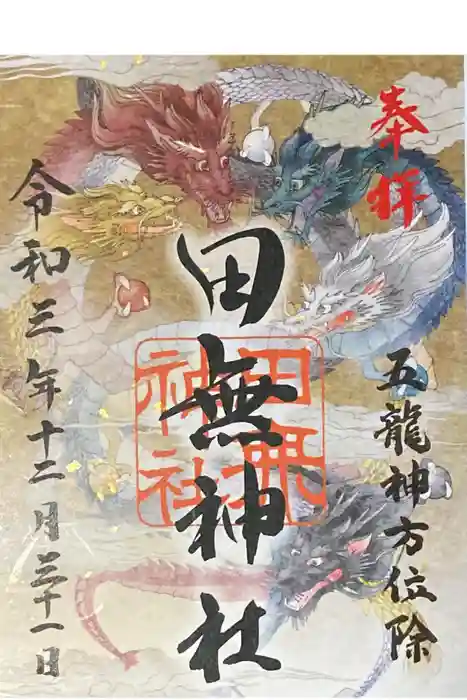 奉拝
五龍神方位除
田無神社
田無
神社
令和三年十二月三十一日